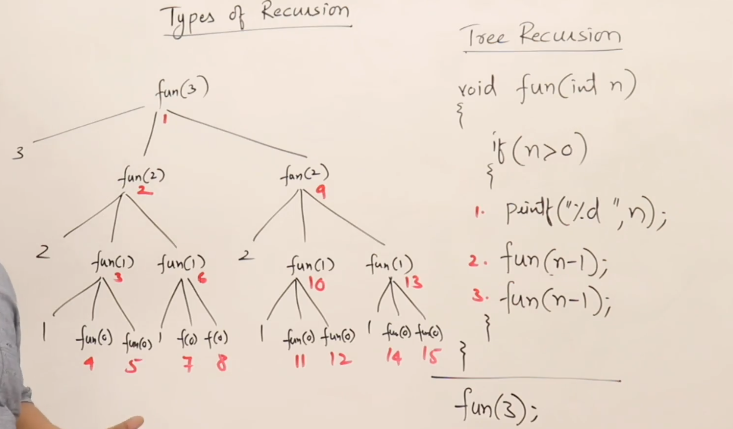 Types of Recursion
fun(3)
1
3
fun(2) fun(2)
2 9
2 fun(1) fun(1) 2 fun(1) fun(1)
3 6 10 13
1 fun(0) fun(0) 1 f(0) f(0) 1 fun(0) fun(0) 1 fun(0) fun(0)
4 5 7 8 11 12 14 15
Tree Recursion
void fun(int n)
{
if(n>0)
{
1. printf("%d ",n);
2. fun(n-1);
3. fun(n-1);
}
}
fun(3);